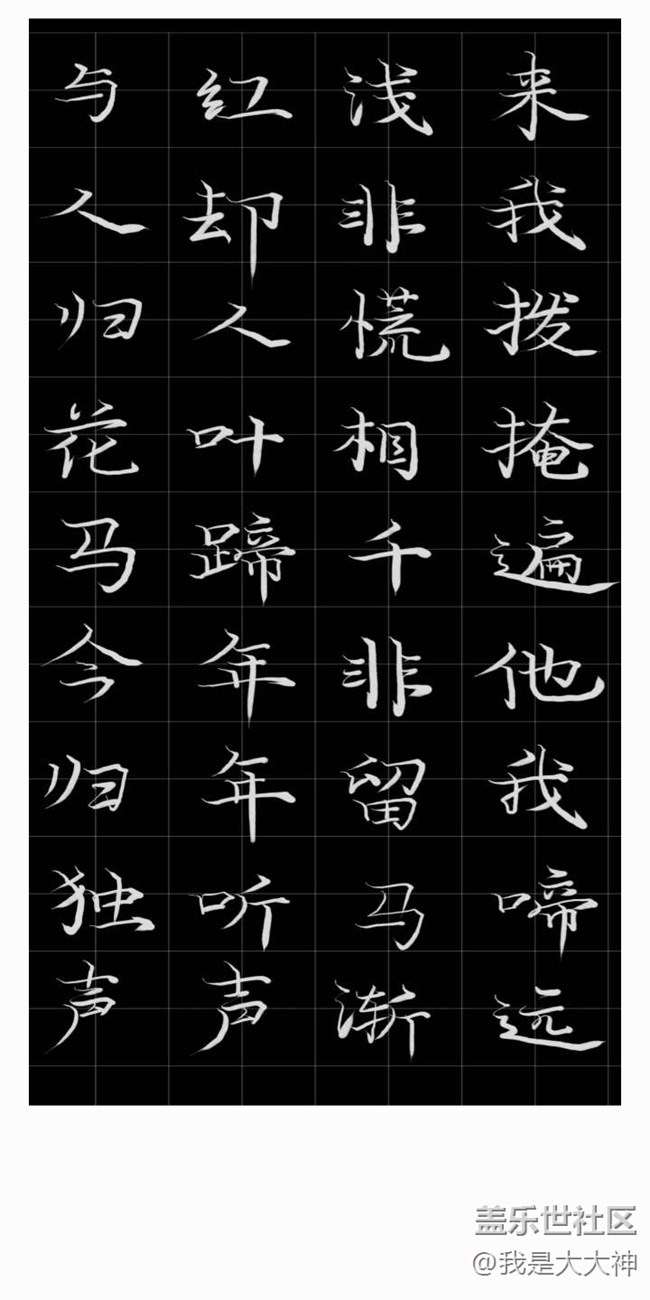 与红浅来
人却非我
归人慌拨
花叶相掩
马蹄千遍
今年非他
归年留我
独听马啼
声声渐远
盖乐世社区
@我是大大神